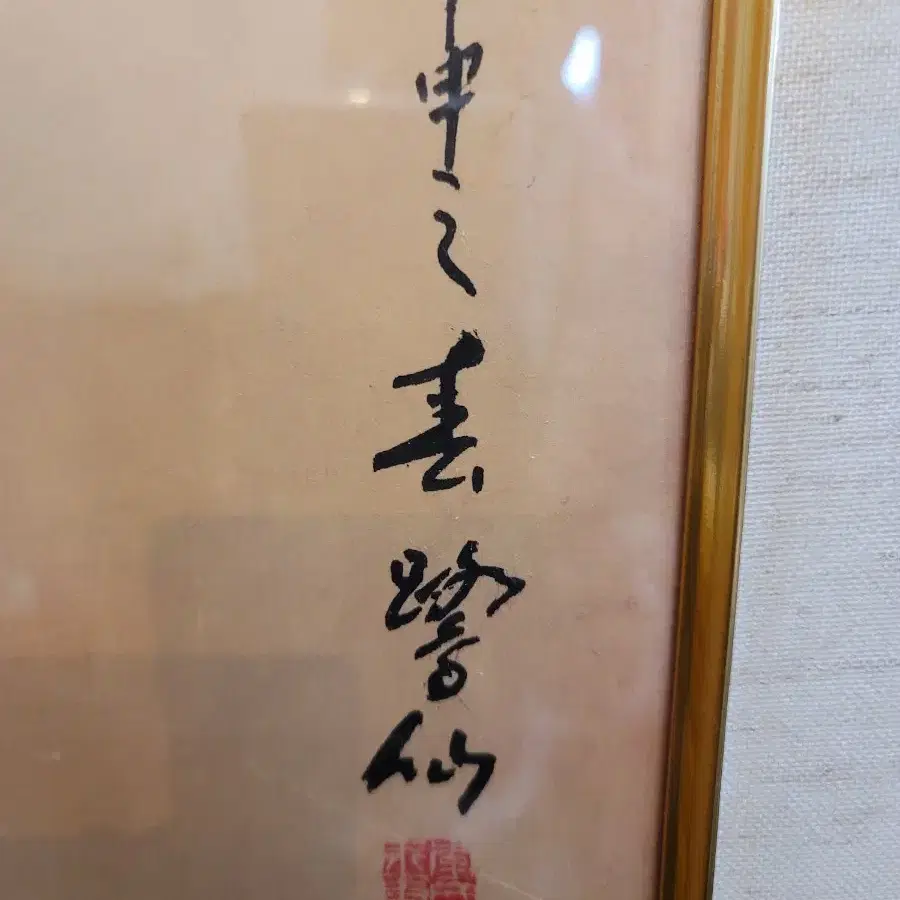 申之春鷺仙